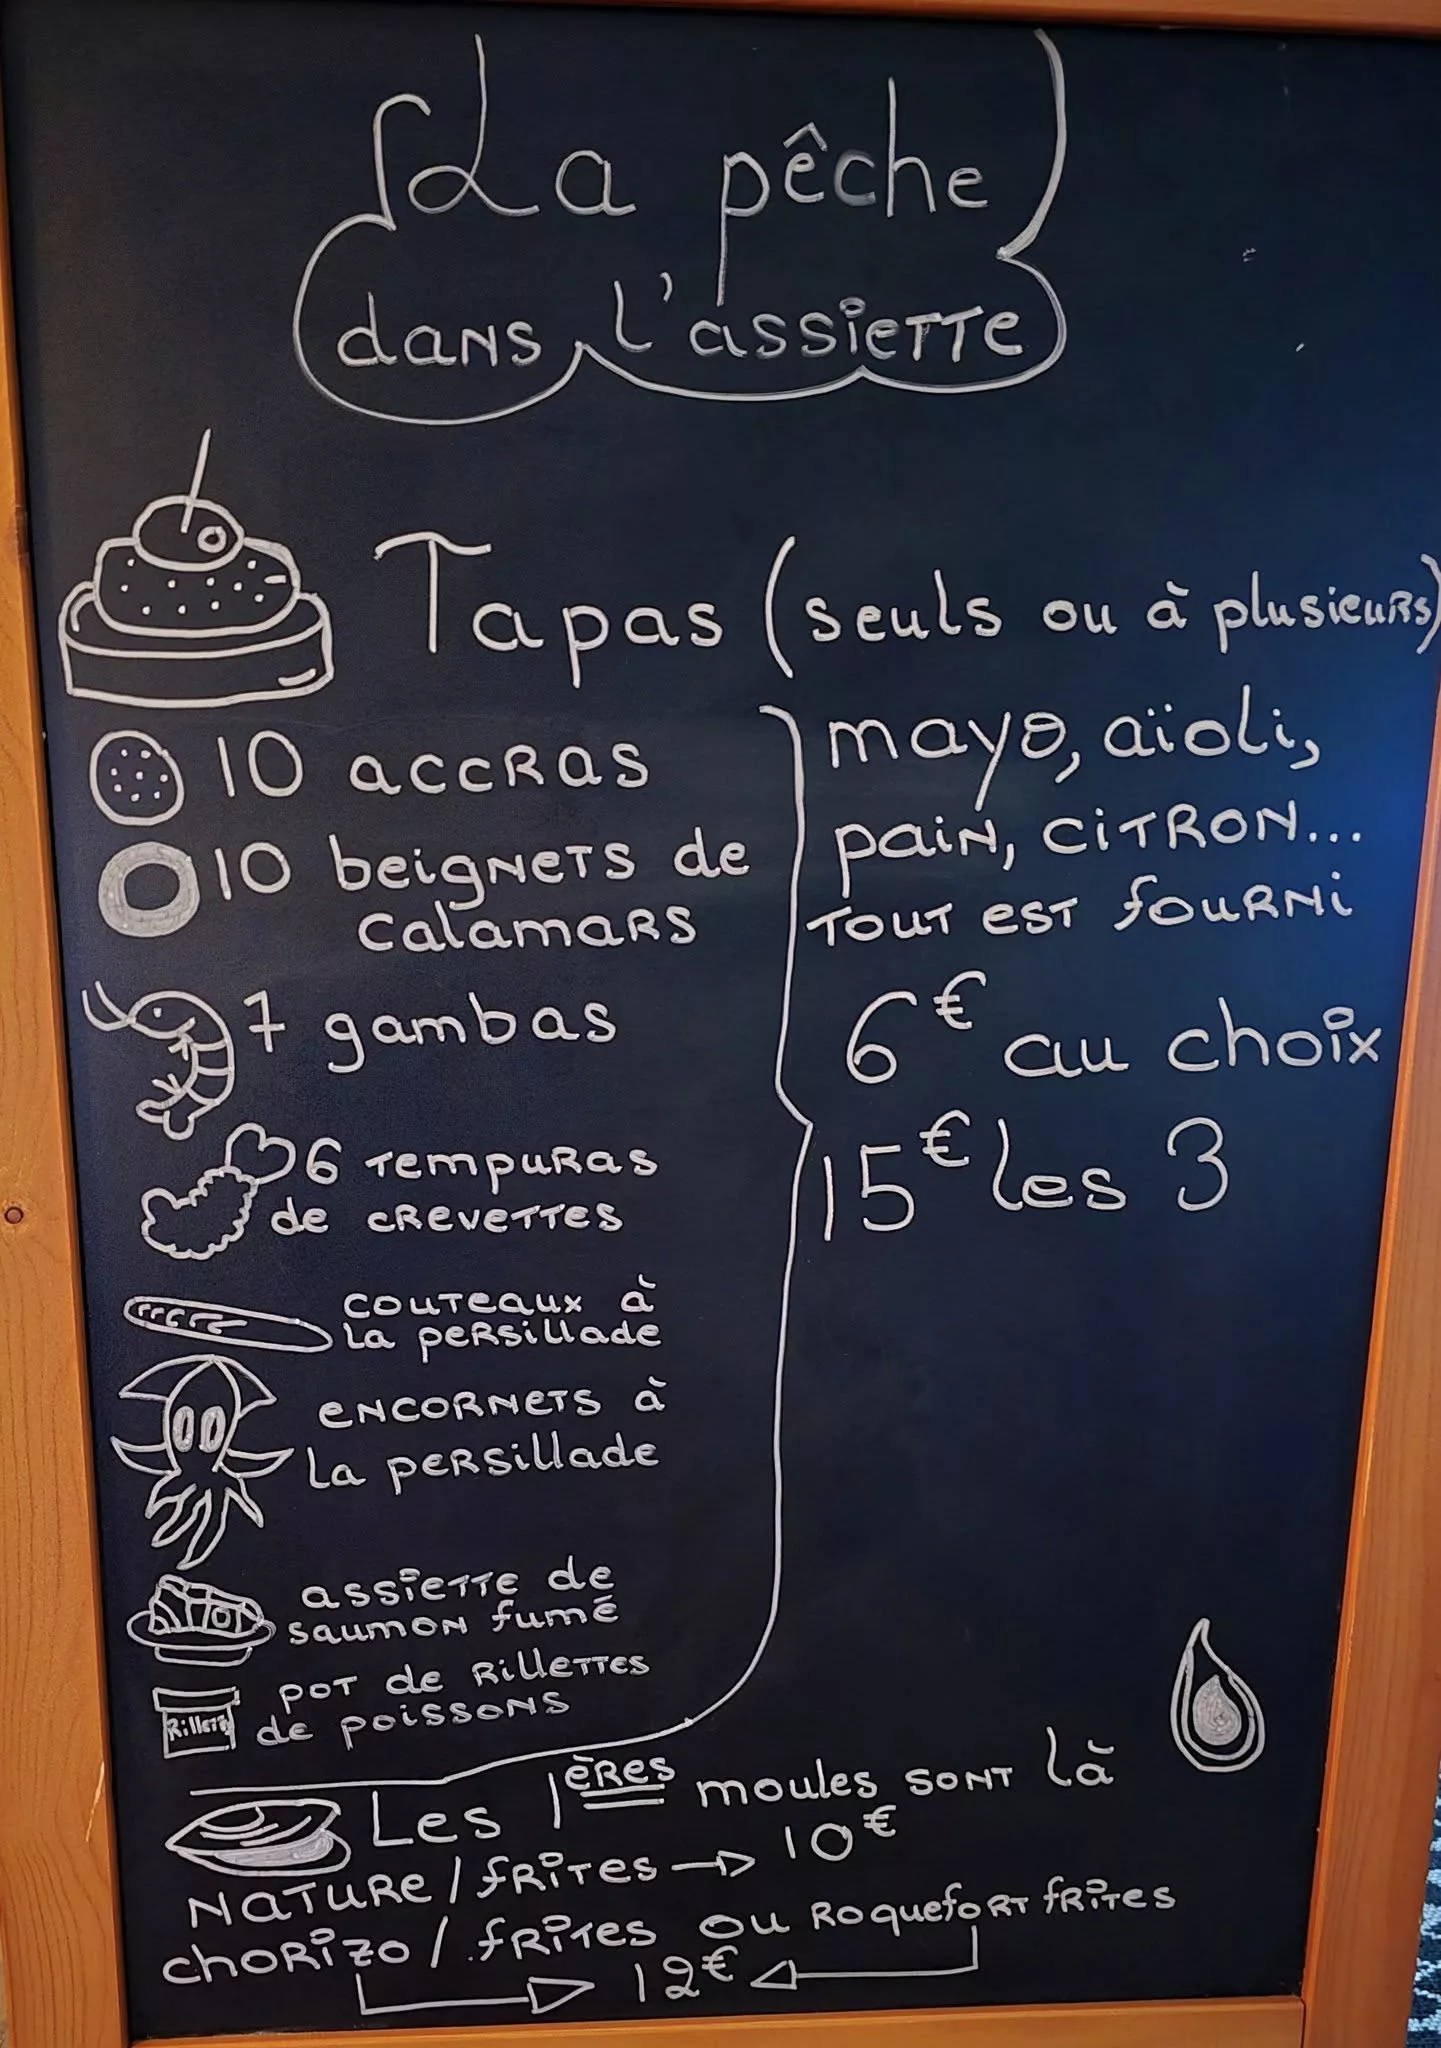 La pêche
dans l'assiette
Tapas (seuls ou à plusieurs)
10 accras
10 beignets de
calamars
7 gambas
6 tempuras
de crevettes
couteaux à
la persillade
encornets à
la persillade
assiette de
saumon fumé
pot de rillettes
de poissons
mayo, aïoli,
pain, citron...
tout est fourni
6€ au choix
15€ les 3
Les 1ères moules sont là
nature/frites → 10€
chorizo/frites ou roquefort frites
12€